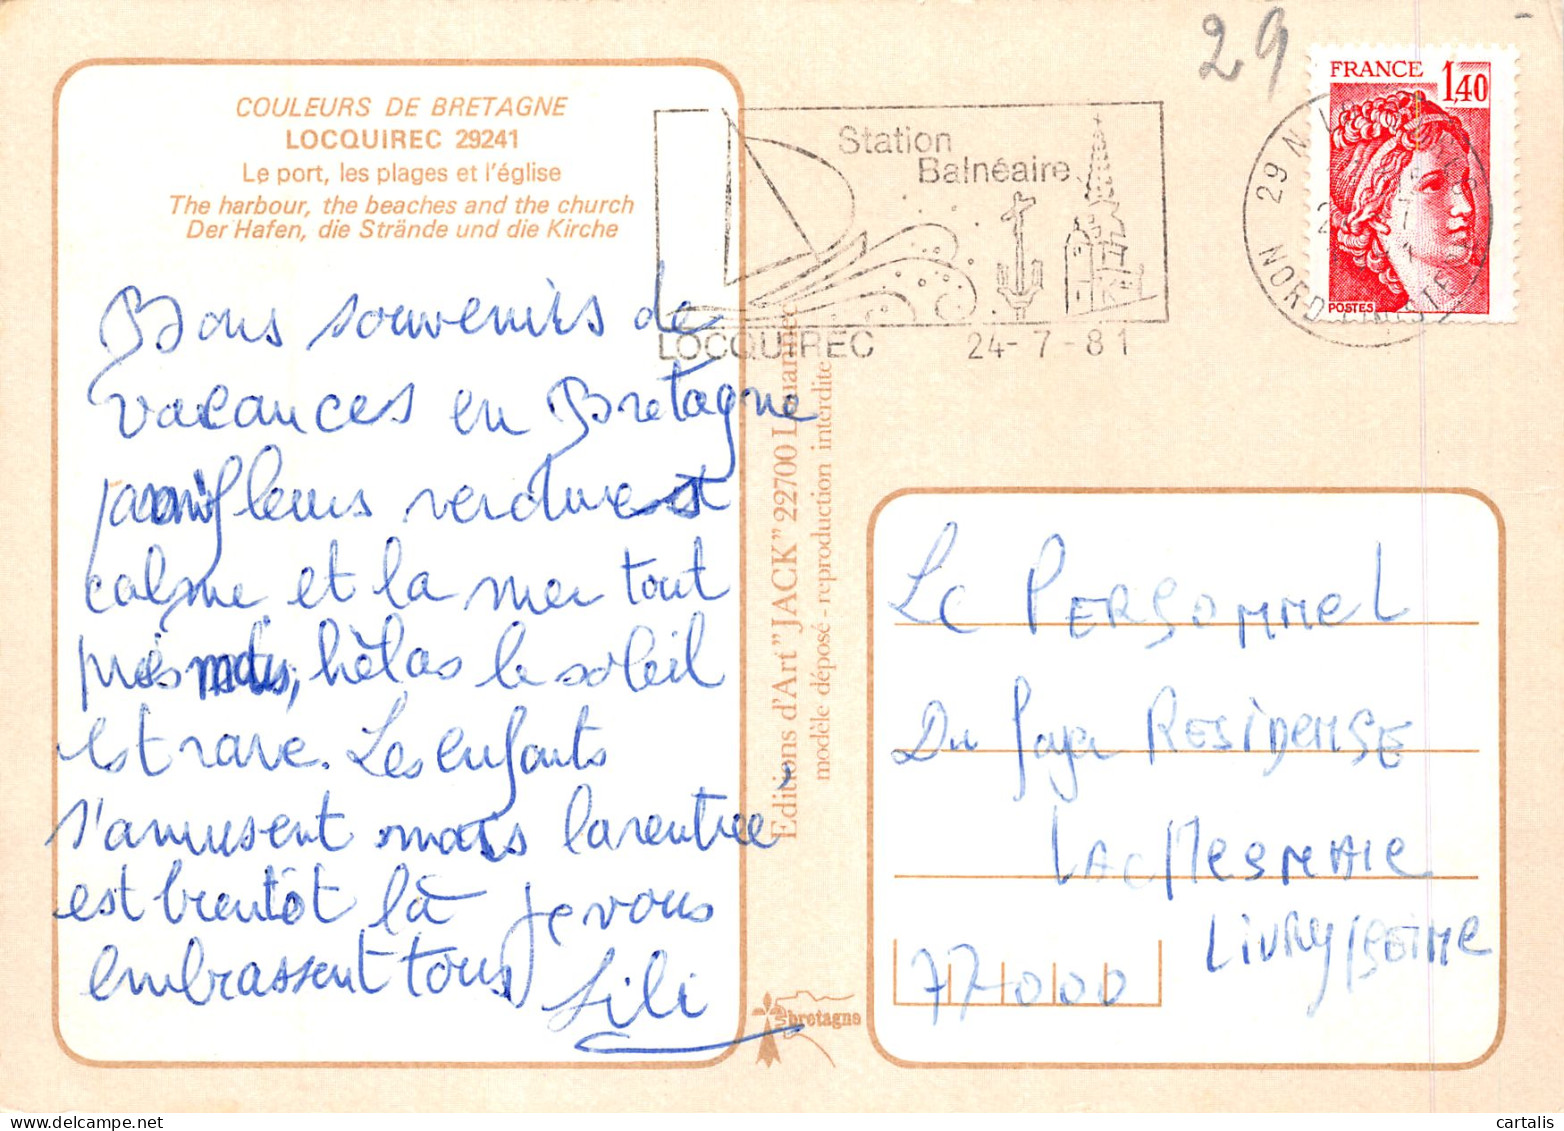 29
FRANCE 1,40
POSTES
COULEURS DE BRETAGNE
LOCQUIREC 29241
Le port, les plages et l'église
The harbour, the beaches and the church
Der Hafen, die Strände und die Kirche
Station
Balnéaire
LOCQUIREC 24-7-81
29 N
NORD FINISTERE
Bons souvenirs de
vacances en Bretagne
fleurs verdure et
calme et la mer tout
près hélas le soleil
est rare. Les enfants
s'amusent mais la rentrée
est bientôt là je vous
embrassent tous
Lili
Editions d'Art "JACK" 22700 Louannec
modèle déposé - reproduction interdite
bretagne
Le PERSONNEL
Du foyer RESIDENSE
LAC
LIVRY/SEINE
77000
cartalis